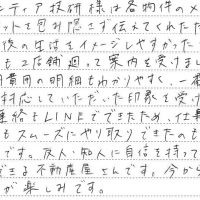 ンティア技研様は各物件のメ
ットを包み隠さず伝えてくれた
後の生活をイメージしやすかった
も2店舗廻って案内を受けまし
費用の明細もわかりやすく、一番
対応していただいた印象を受け
連絡もLINEでできたため、仕事
もスムーズにやり取りできたのも
です。友人・知人に自信を持って
できる不動産屋さんです。今から
が楽しみです。